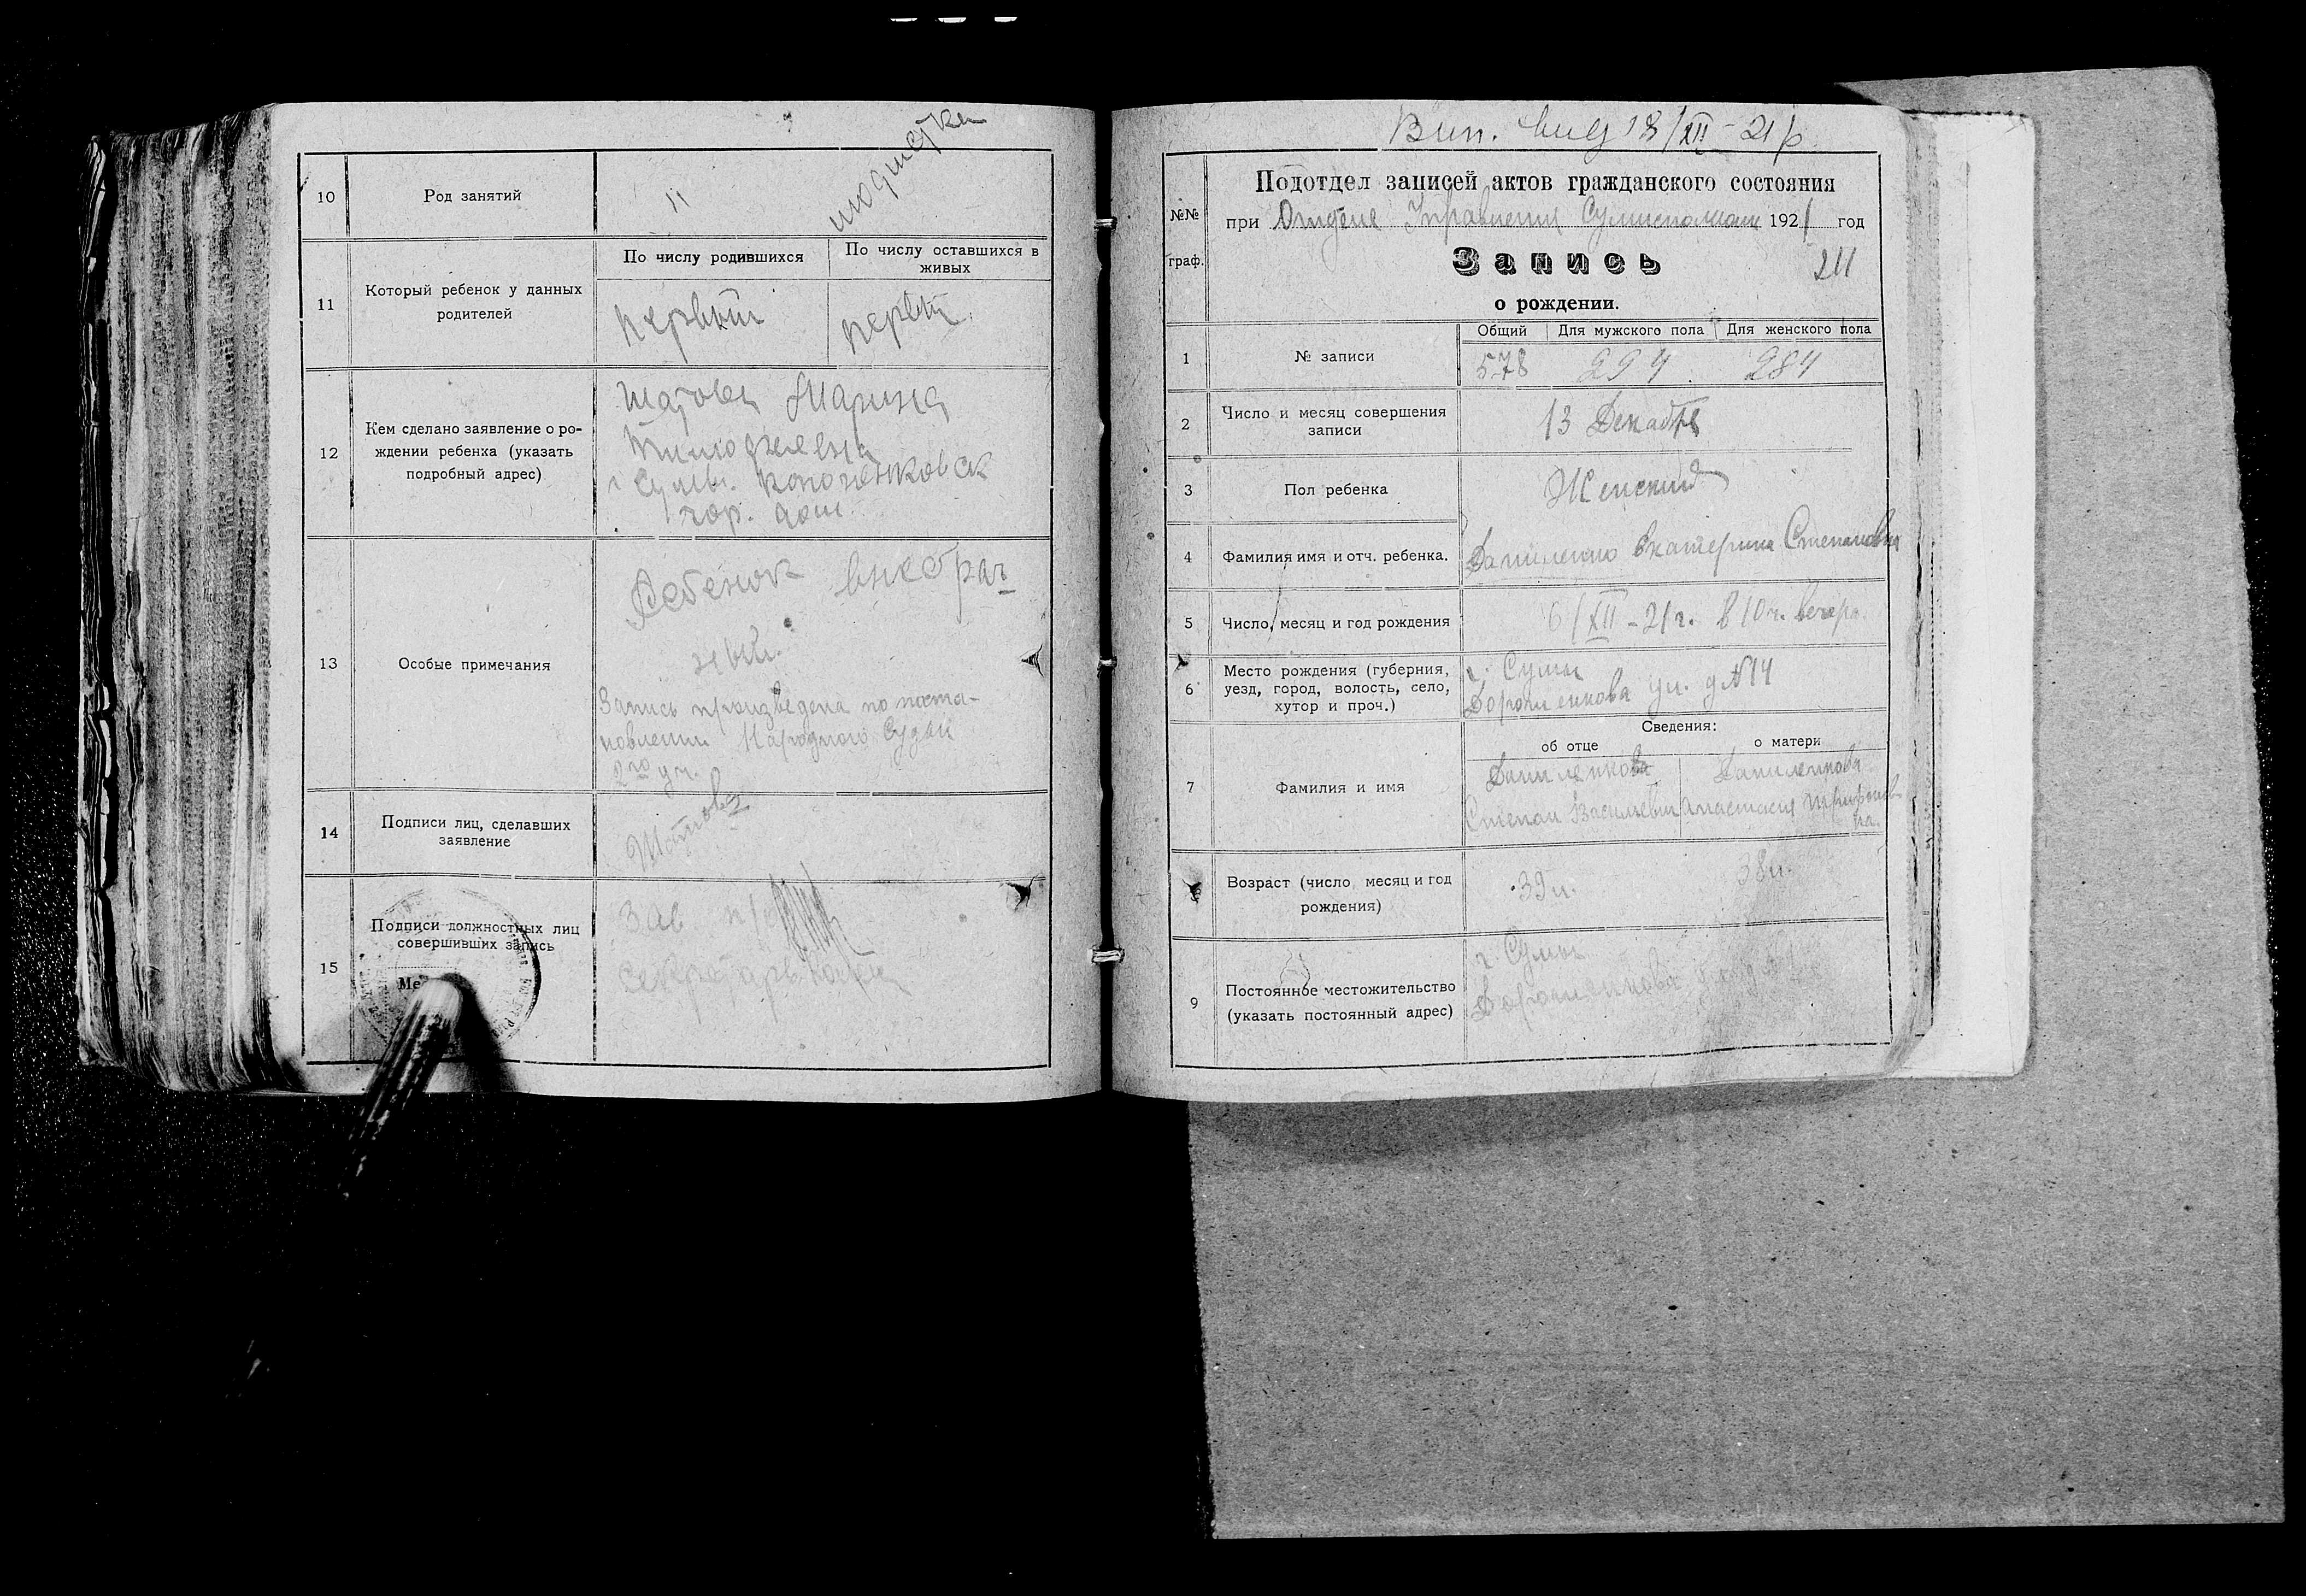 10
Род занятий
11
модистка
11
Который ребенок у данных
родителей
По числу родившихся
По числу оставшихся в
живых
первый
первый
12
Кем сделано заявление о ро-
ждении ребенка (указать
подробный адрес)
Марина
г Сумы.
13
Особые примечания
Ребенок внебрач
ный.
Запись произведена по поста-
новлению Народного Судьи
2го уч.
14
Подписи лиц, сделавших
заявление
15
Подписи должностных лиц
совершивших запись
Зав
Секретарь
18/XII-21 р
№№
граф.
Подотдел записей актов гражданского состояния
при Отделе Управления 1921 год
Запись
211
о рождении.
1
№ записи
Общий
Для мужского пола
Для женского пола
578
294
284
2
Число и месяц совершения
записи
13 Декабря
3
Пол ребенка
Женский
4
Фамилия имя и отч. ребенка.
Даниленко Екатерина Степановна
5
Число, месяц и год рождения
6/XII-21г. в 10ч. вечера.
6
Место рождения (губерния,
уезд, город, волость, село,
хутор и проч.)
г. Сумы
ул. д №14
7
Фамилия и имя
Сведения:
об отце
о матери
Даниленкова
Даниленкова
Степан Васильевич
Анастасия
8
Возраст (число месяц и год
рождения)
39л.
38л.
9
Постоянное местожительство
(указать постоянный адрес)
г. Сумы